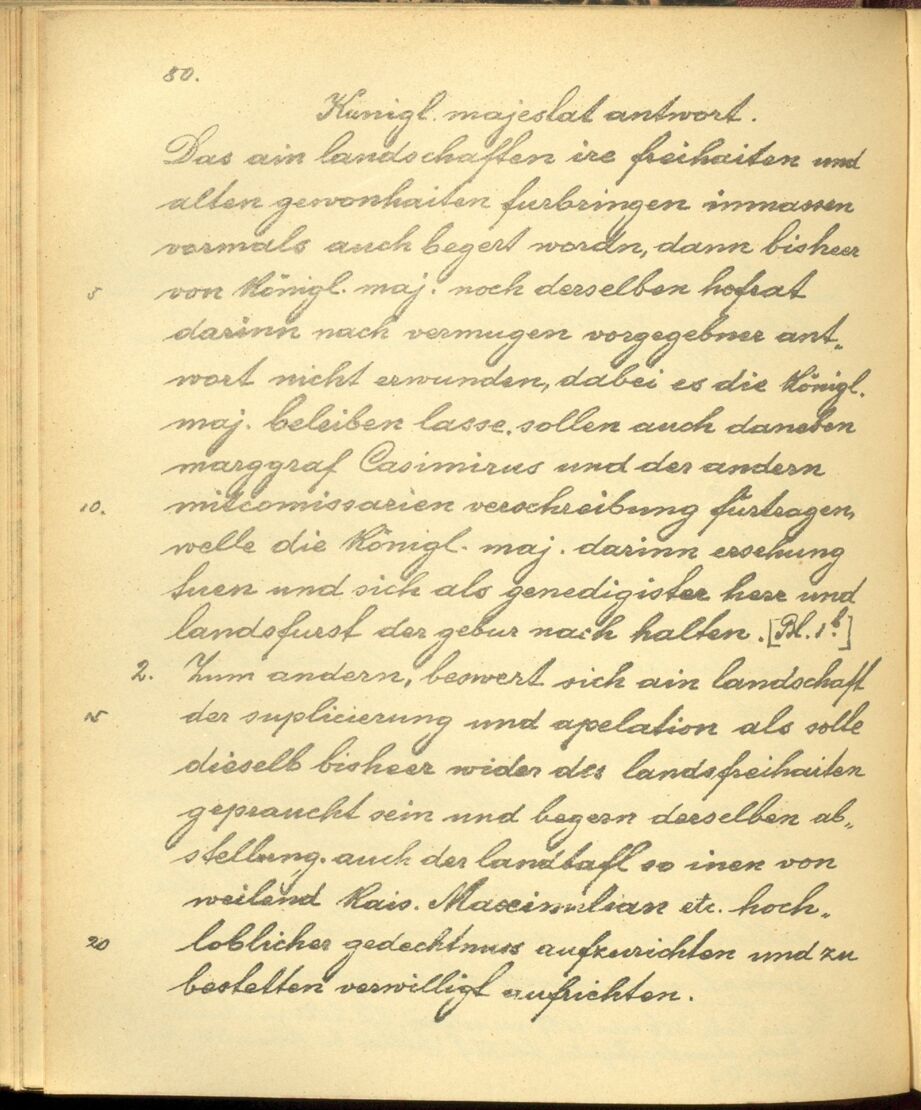 80.
Kunigl. majestat antwort.
Das ain landschaften ire freihaiten und
alten gewonhaiten furbringen inmassen
vormals auch begert wordn, dann bisheer
5 von Königl. maj. noch derselben hofrat
darinn nach vermugen vorgegebner ant„
wort nicht erwunden, dabei es die Königl.
maj. beleiben lasse, sollen auch daneben
marggraf Casimirus und der andern
10. mitcomissarien verschreibung fürtragen,
welle die Königl. maj. darinn ersehung
tuen und sich als genedigister herr und
landsfurst der gebur nach halten. [Bl. 1b.]
2. Zum andern, beswert sich ain landschaft
15 der suplicierung und apelation als solle
dieselb bisheer wider des landsfreihaiten
gepraucht sein und begern derselben ab„
stellung. auch der landtafl so inen von
weilend Kais. Maximilian etc. hoch„
20 loblicher gedechtnuss aufzurichten und zu
bestetten verwilligt aufrichten.